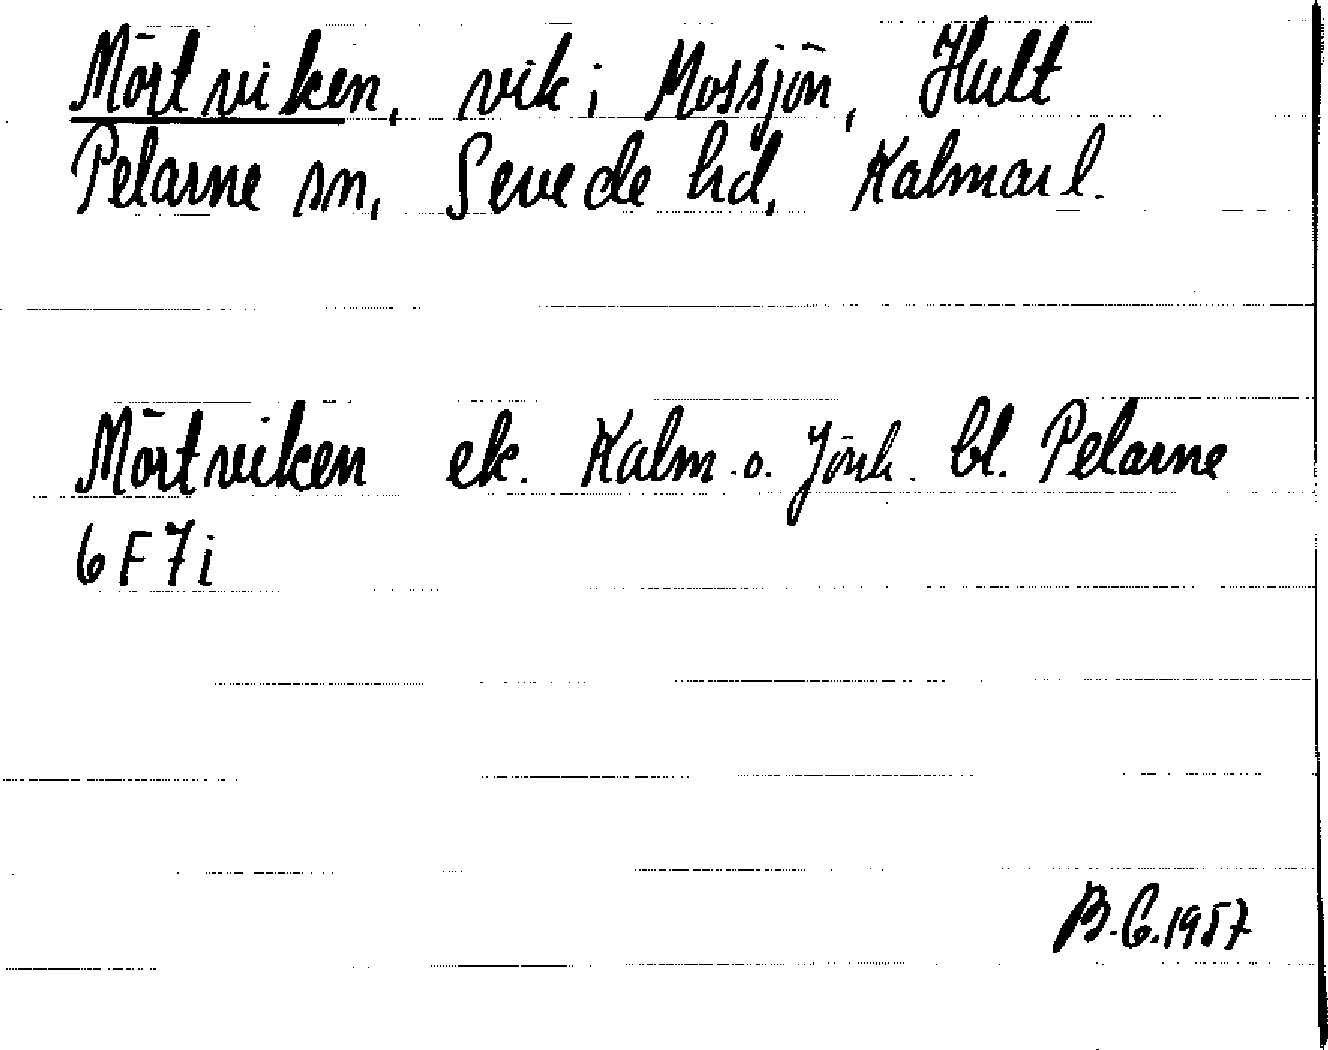 Mörtviken, vik i Mossjön, Hult
Pelarne sn, Sevede hd, Kalmar l.
Mörtviken ek. Kalm. o. Jönk. bl. Pelarne
6F7i
B.G.1957